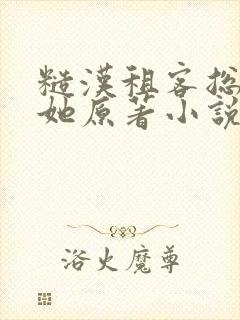 糙漢租客總
她原著小說
浴火魔尊